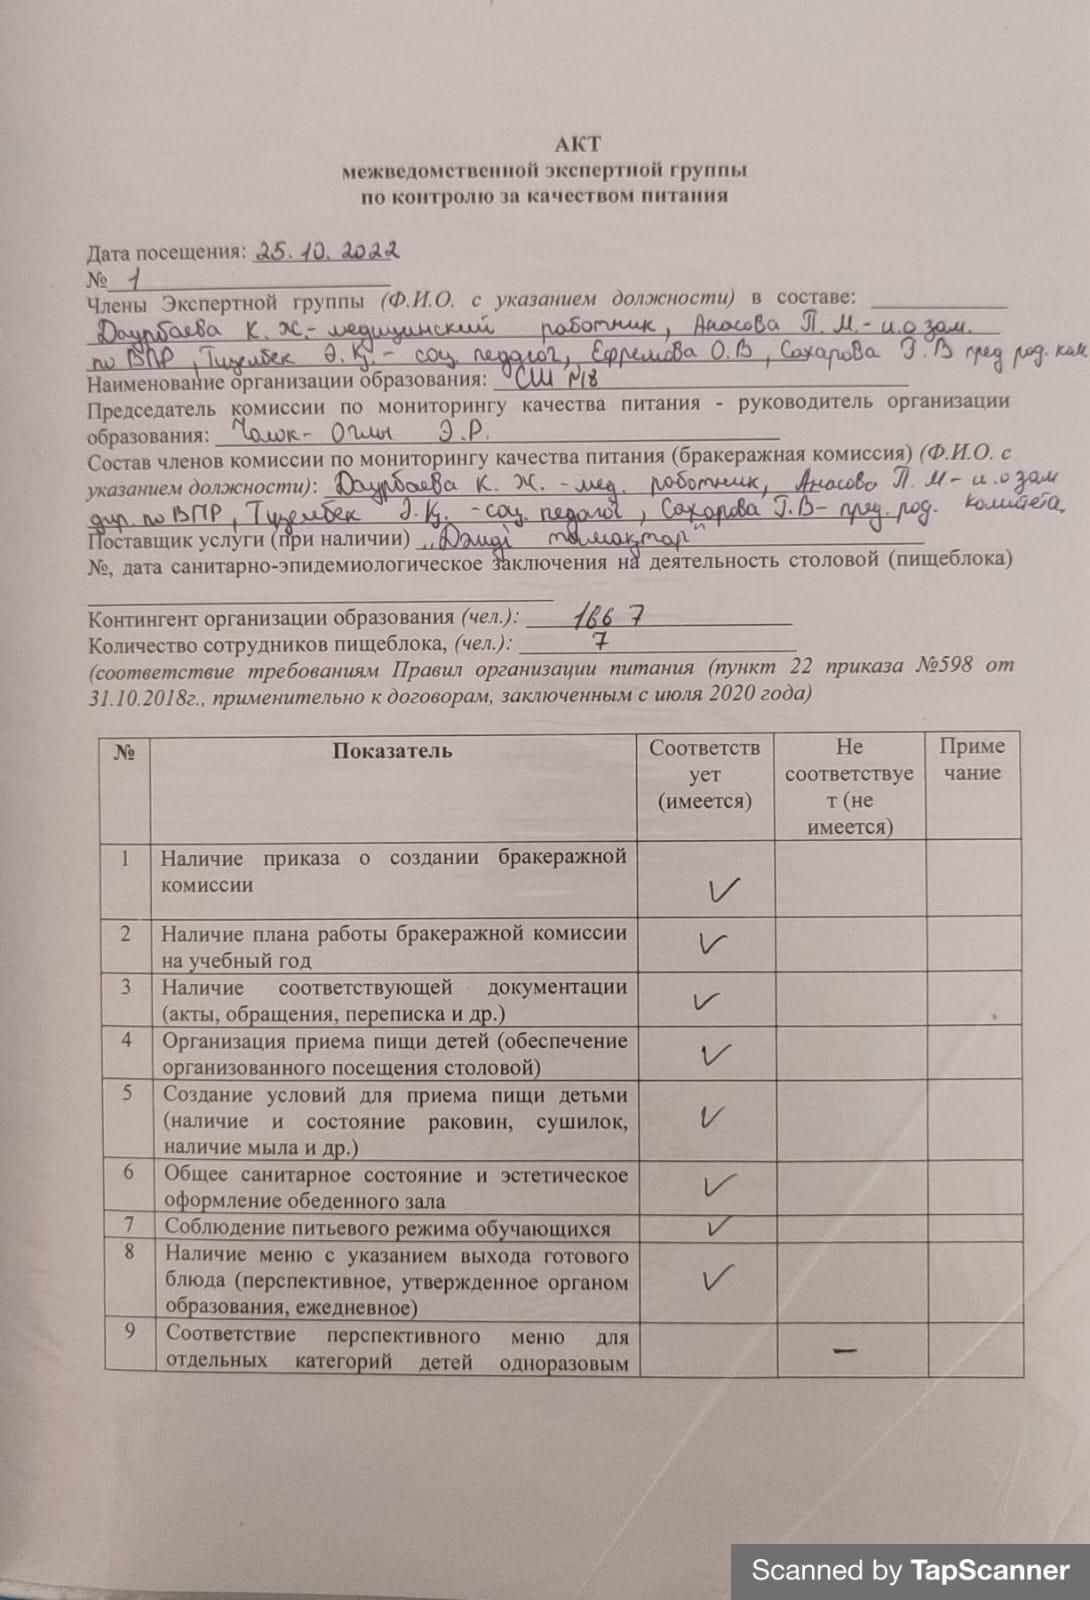 АКТ
межведомственной экспертной группы
по контролю за качеством питания
Дата посещения: 25.10.2022
№ 1
Члены Экспертной группы (Ф.И.О. с указанием должности) в составе:
Даурбаева К. Ж. - медицинский работник, Анасова П. М. - и.о зам.
по ВПР, Э. Қ. - соц. педагог, Ефремова О.В, Сахарова Г.В пред род. ком.
Наименование организации образования: СШ №18
Председатель комиссии по мониторингу качества питания - руководитель организации
образования: Чолок-Оглы Э.Р.
Состав членов комиссии по мониторингу качества питания (бракеражная комиссия) (Ф.И.О. с
указанием должности): Даурбаева К. Ж. - мед. работник, Анасова П. М - и.о зам
дир. по ВПР, Қ. - соц. педагог, Сахарова Г.В - пред. род. комитета
Поставщик услуги (при наличии) „Дәмді тамақтар"
№, дата санитарно-эпидемиологическое заключения на деятельность столовой (пищеблока)
Контингент организации образования (чел.): 1667
Количество сотрудников пищеблока, (чел.): 7
(соответствие требованиям Правил организации питания (пункт 22 приказа №598 от
31.10.2018г., применительно к договорам, заключенным с июля 2020 года)
№ Показатель Соответств Не Приме
ует соответствуе чание
(имеется) т (не
имеется)
1 Наличие приказа о создании бракеражной
комиссии ✓
2 Наличие плана работы бракеражной комиссии ✓
на учебный год
3 Наличие соответствующей документации ✓
(акты, обращения, переписка и др.)
4 Организация приема пищи детей (обеспечение ✓
организованного посещения столовой)
5 Создание условий для приема пищи детьми
(наличие и состояние раковин, сушилок, ✓
наличие мыла и др.)
6 Общее санитарное состояние и эстетическое ✓
оформление обеденного зала
7 Соблюдение питьевого режима обучающихся ✓
8 Наличие меню с указанием выхода готового
блюда (перспективное, утвержденное органом ✓
образования, ежедневное)
9 Соответствие перспективного меню для –
отдельных категорий детей одноразовым
Scanned by TapScanner